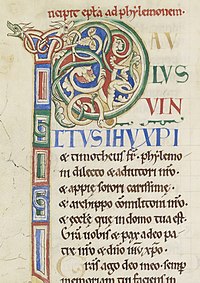 Incipit epta ad phylemonem.
PAV
LVS
VIN
CTVS IHV XPI
& timotheus fr. phylemo
ni dilecto & adiutori nro.
& appie sorori carissime.
& archippo comilitoni nro.
& eccle que in domo tua est.
Gra uobis & pax a deo pa
tre nro & dno ihu xpo.
Gras ago deo meo. semp
memoriam tui faciens in